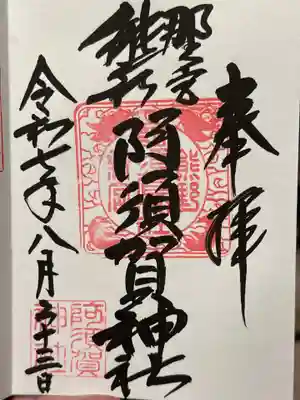 奉拝
熊野
新宮
阿須賀神社
令和七年八月二十三日
阿須賀
神社